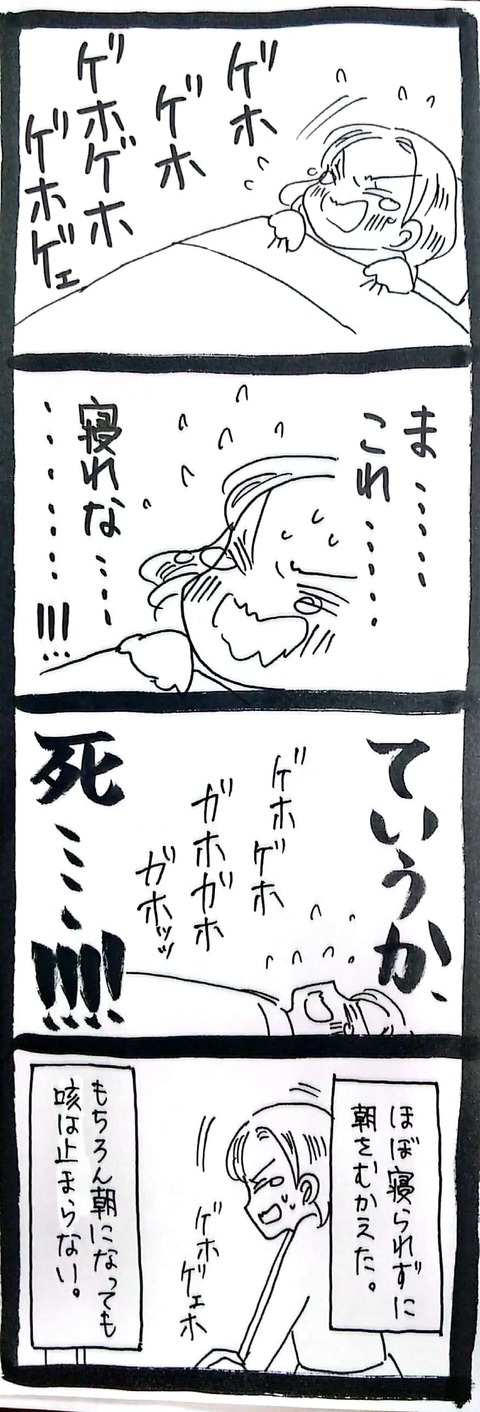 ゲホ
ゲホ
ゲホゲホ
ゲホゲェ
ま……
これ……
寝れな……
………!!!
ていうか、
ゲホゲホ
ガホガホ
ガホッッ
死……!!!!
ほぼ寝られずに
朝をむかえた。
ゲホ
ゲェホ
もちろん朝になっても
咳は止まらない。